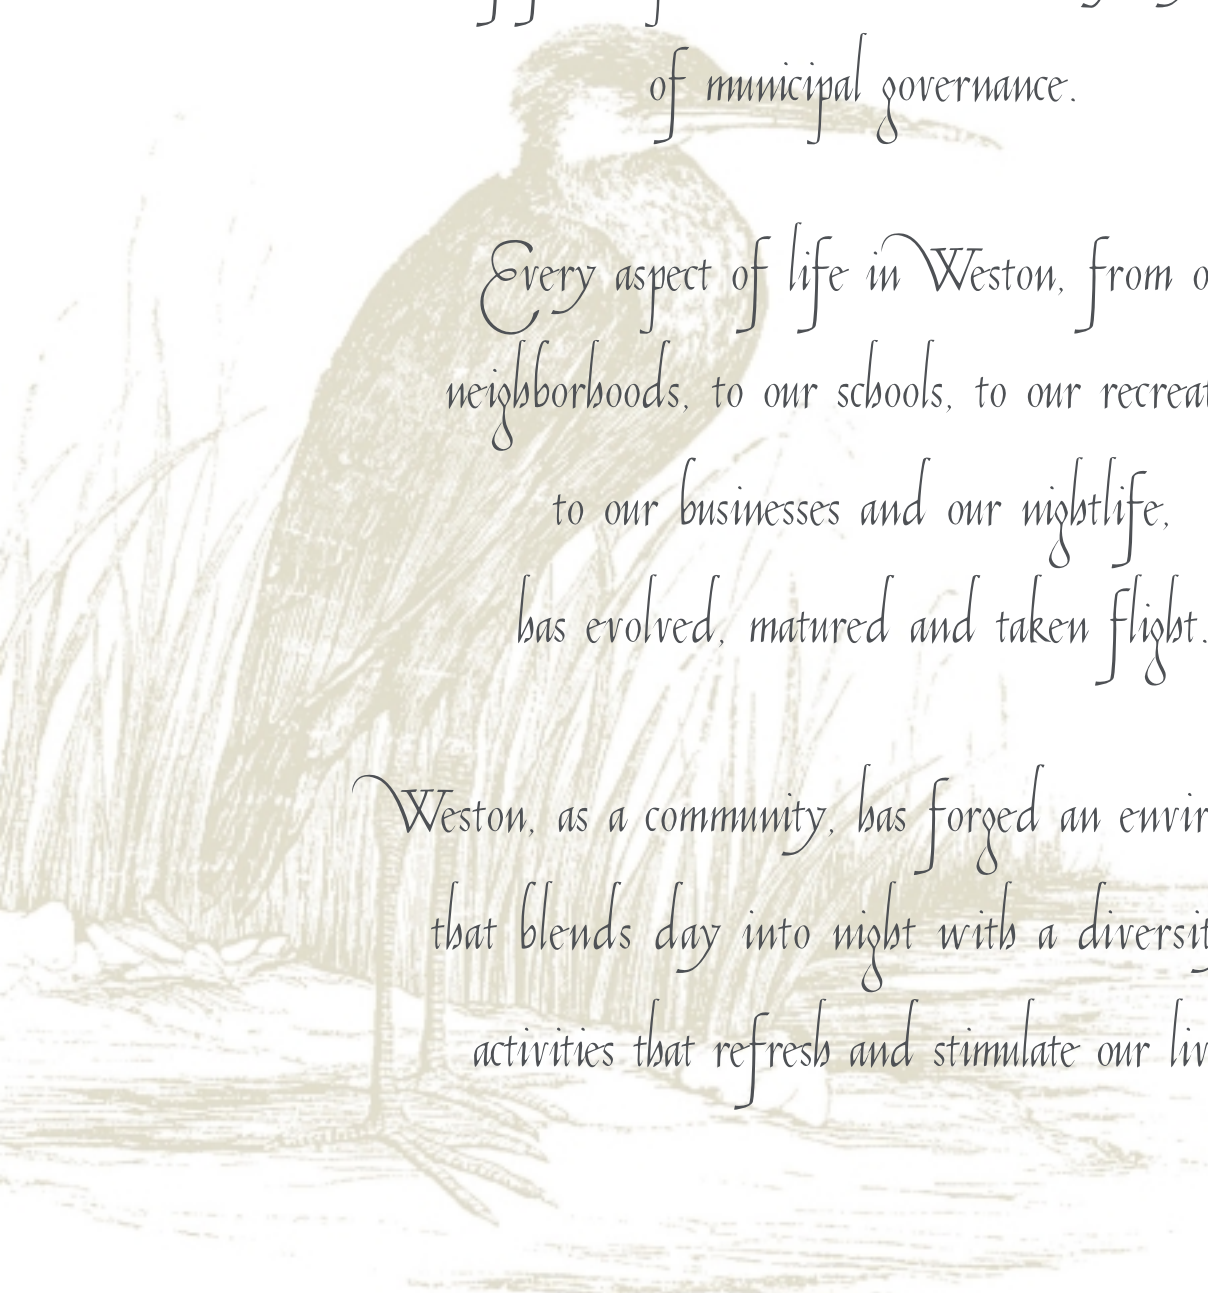 of municipal governance.
Every aspect of life in Weston, from o
neighborhoods, to our schools, to our recreat
to our businesses and our nightlife,
has evolved, matured and taken flight.
Weston, as a community, has forged an envir
that blends day into night with a diversit
activities that refresh and stimulate our liv